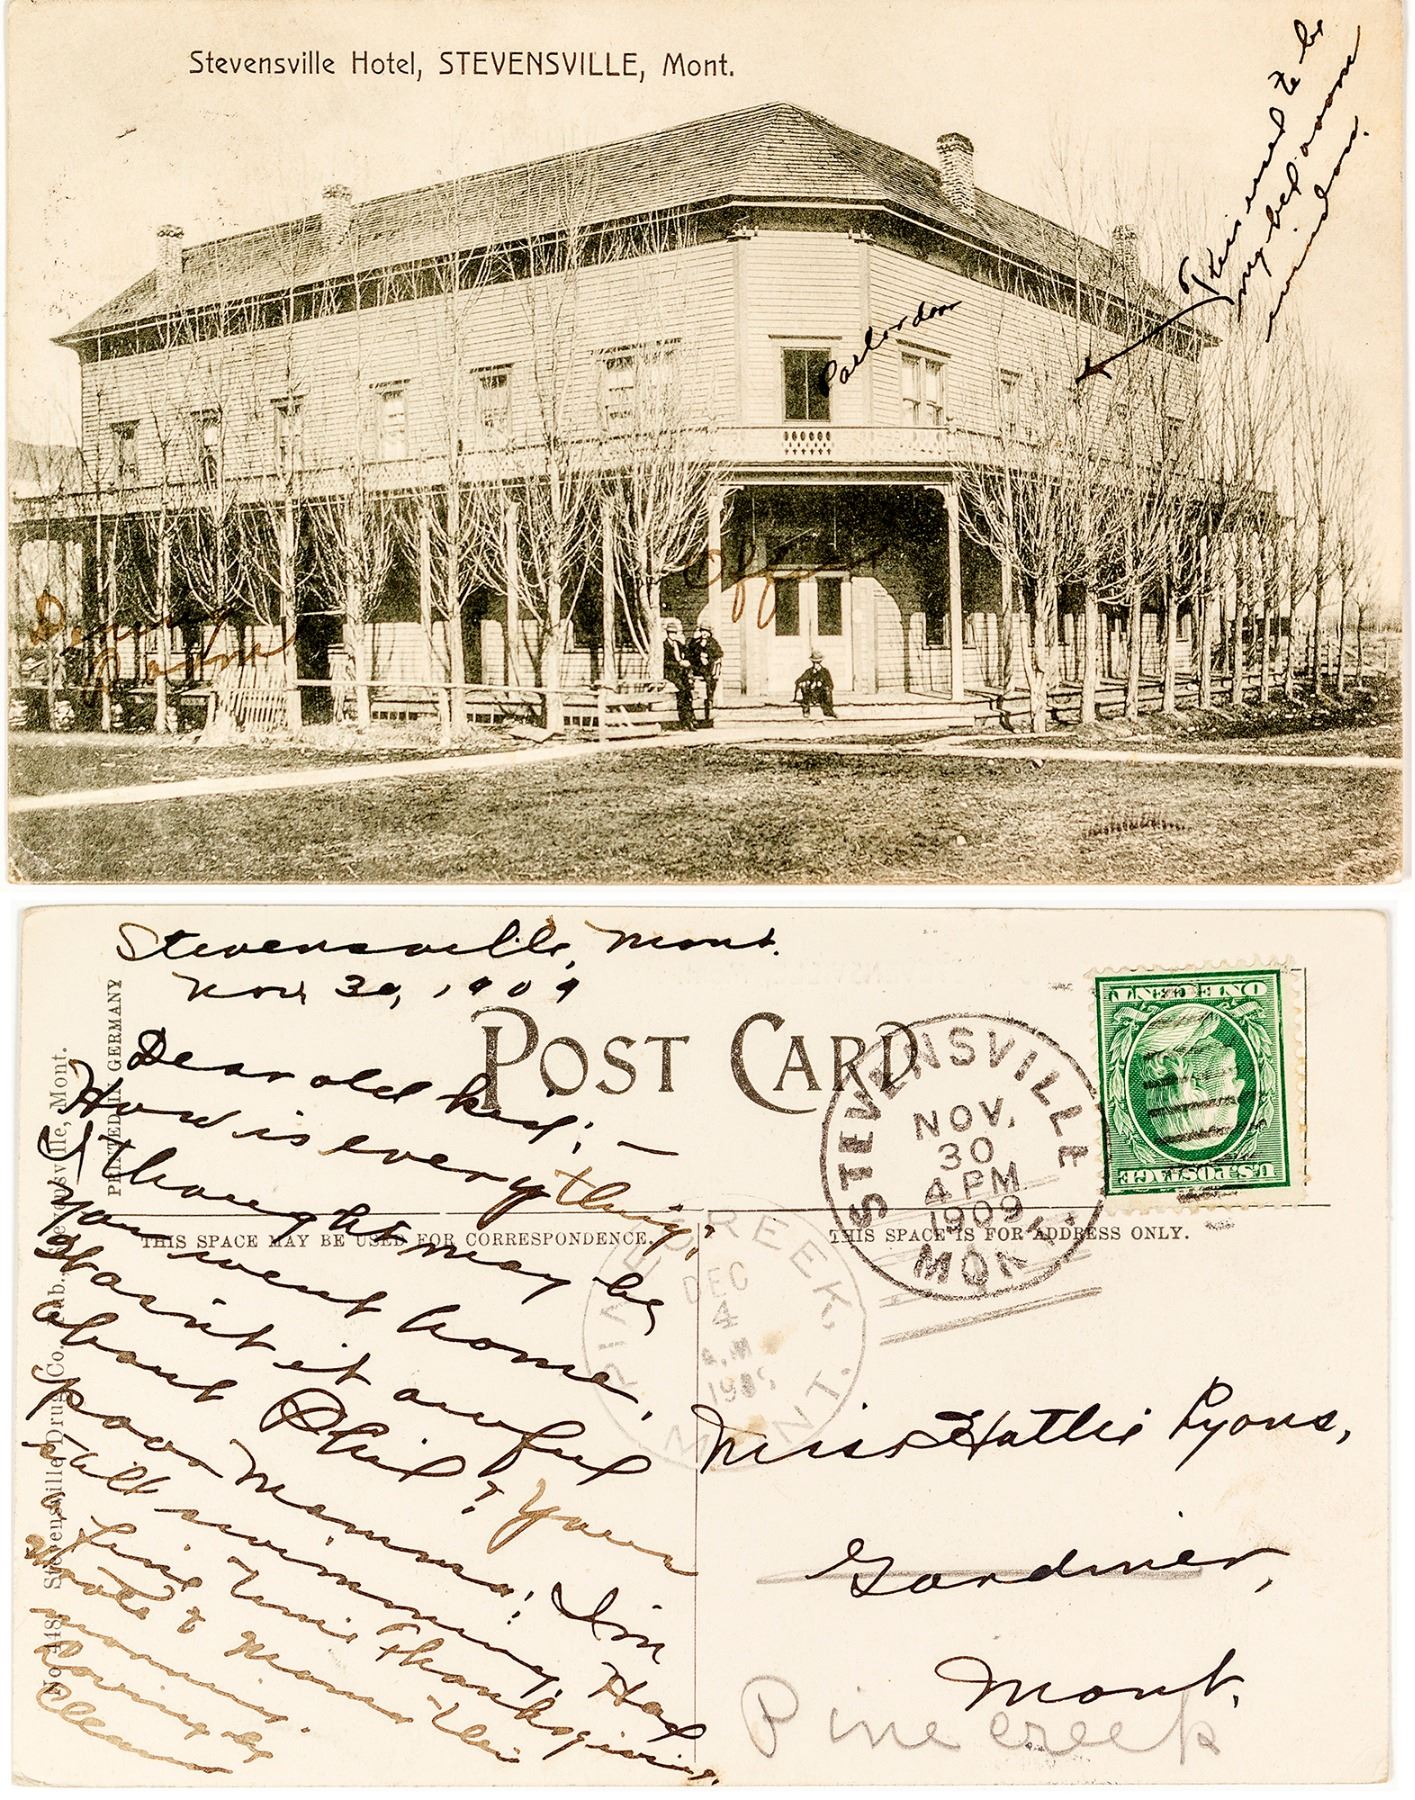 Stevensville Hotel, STEVENSVILLE, Mont.
This used to be
my bed room
window.
Parlor door
Office
Dining
Room
Stevensville, Mont.
Nov 30, 1909
Dear old kid; —
How is everything;
I thought may be
you went home,
Hasn't it awful
about Phil? Your
poor Mamma; I'm
still swimming, Had
a fine time Thanksgiving.
Wrote to Mamma this
morning.
Lovingly
POST CARD
THIS SPACE MAY BE USED FOR CORRESPONDENCE.
THIS SPACE IS FOR ADDRESS ONLY.
PRINTED IN GERMANY
No. 418 Stevensville Drug Co. Pub. Stevensville, Mont.
STEVENSVILLE
NOV.
30
4 PM
1909
MONT.
PINE CREEK,
DEC
4
A.M.
1909
MONT.
ONE CENT
U.S. POSTAGE
Miss Hattie Lyons,
Gardiner,
Mont.
Pine creek